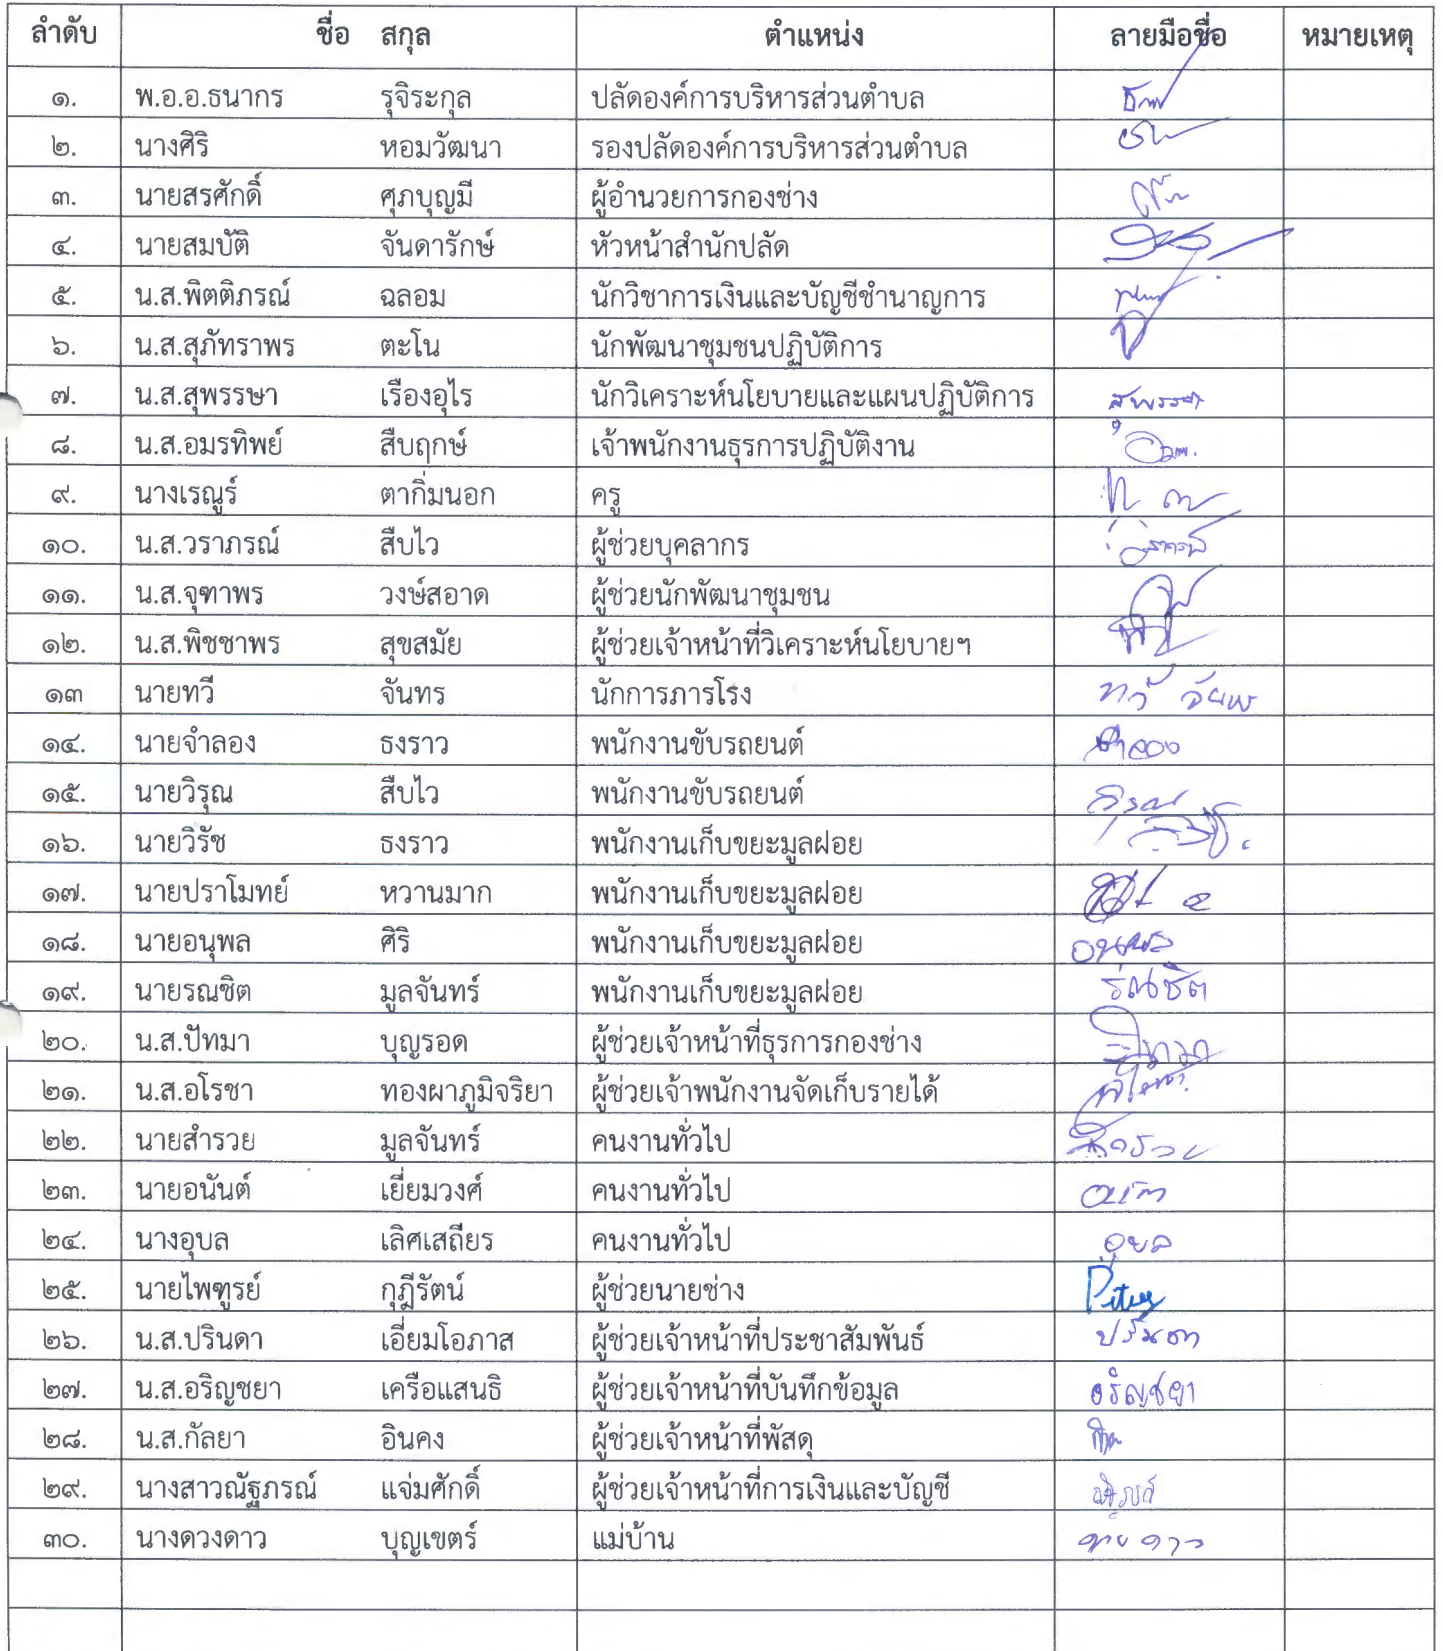 ลำดับ ชื่อ สกุล ตำแหน่ง ลายมือชื่อ หมายเหตุ
๑. พ.อ.อ.ธนากร รุจิระกุล ปลัดองค์การบริหารส่วนตำบล
๒. นางศิริ หอมวัฒนา รองปลัดองค์การบริหารส่วนตำบล
๓. นายสรศักดิ์ ศุภบุญมี ผู้อำนวยการกองช่าง
๔. นายสมบัติ จันดารักษ์ หัวหน้าสำนักปลัด
๕. น.ส.พิตติภรณ์ ฉลอม นักวิชาการเงินและบัญชีชำนาญการ
๖. น.ส.สุภัทราพร ตะโน นักพัฒนาชุมชนปฏิบัติการ
๗. น.ส.สุพรรษา เรืองอุไร นักวิเคราะห์นโยบายและแผนปฏิบัติการ สุพรรษา
๘. น.ส.อมรทิพย์ สืบฤกษ์ เจ้าพนักงานธุรการปฏิบัติงาน
๙. นางเรณูร์ ตากิ่มนอก ครู
๑๐. น.ส.วราภรณ์ สืบไว ผู้ช่วยบุคลากร
๑๑. น.ส.จุฑาพร วงษ์สอาด ผู้ช่วยนักพัฒนาชุมชน
๑๒. น.ส.พิชชาพร สุขสมัย ผู้ช่วยเจ้าหน้าที่วิเคราะห์นโยบายฯ
๑๓ นายทวี จันทร นักการภารโรง
๑๔. นายจำลอง ธงราว พนักงานขับรถยนต์ จำลอง
๑๕. นายวิรุณ สืบไว พนักงานขับรถยนต์ วิรุณ
๑๖. นายวิรัช ธงราว พนักงานเก็บขยะมูลฝอย
๑๗. นายปราโมทย์ หวานมาก พนักงานเก็บขยะมูลฝอย
๑๘. นายอนุพล ศิริ พนักงานเก็บขยะมูลฝอย อนุพล
๑๙. นายรณชิต มูลจันทร์ พนักงานเก็บขยะมูลฝอย รณชิต
๒๐. น.ส.ปัทมา บุญรอด ผู้ช่วยเจ้าหน้าที่ธุรการกองช่าง
๒๑. น.ส.อโรชา ทองผาภูมิจริยา ผู้ช่วยเจ้าพนักงานจัดเก็บรายได้
๒๒. นายสำรวย มูลจันทร์ คนงานทั่วไป สำรวย
๒๓. นายอนันต์ เยี่ยมวงศ์ คนงานทั่วไป
๒๔. นางอุบล เลิศเสถียร คนงานทั่วไป อุบล
๒๕. นายไพฑูรย์ กุฎีรัตน์ ผู้ช่วยนายช่าง
๒๖. น.ส.ปรินดา เอี่ยมโอภาส ผู้ช่วยเจ้าหน้าที่ประชาสัมพันธ์ ปรินดา
๒๗. น.ส.อริญชยา เครือแสนธิ ผู้ช่วยเจ้าหน้าที่บันทึกข้อมูล อริญชยา
๒๘. น.ส.กัลยา อินคง ผู้ช่วยเจ้าหน้าที่พัสดุ
๒๙. นางสาวณัฐภรณ์ แจ่มศักดิ์ ผู้ช่วยเจ้าหน้าที่การเงินและบัญชี
๓๐. นางดวงดาว บุญเขตร์ แม่บ้าน